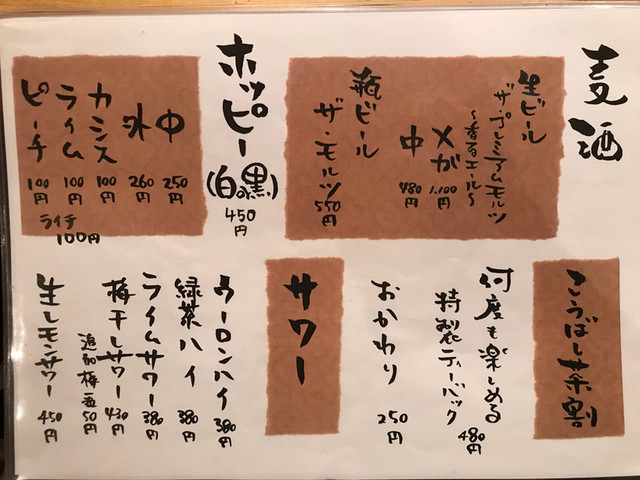 麦酒
生ビール
ザ・プレミアムモルツ
〜香るエール〜
メガ 1.100円
中 480円
瓶ビール
ザ・モルツ 550円
ホッピー(白or黒) 450円
中 250円
外 260円
カシス 100円
ライム 100円
ピーチ 100円
ライチ 100円
こうばし茶割
何度も楽しめる
特製ティーバック 480円
おかわり 250円
サワー
ウーロンハイ 380円
緑茶ハイ 380円
ライムサワー 380円
梅干しサワー 430円
追加梅一粒 50円
生レモンサワー 450円